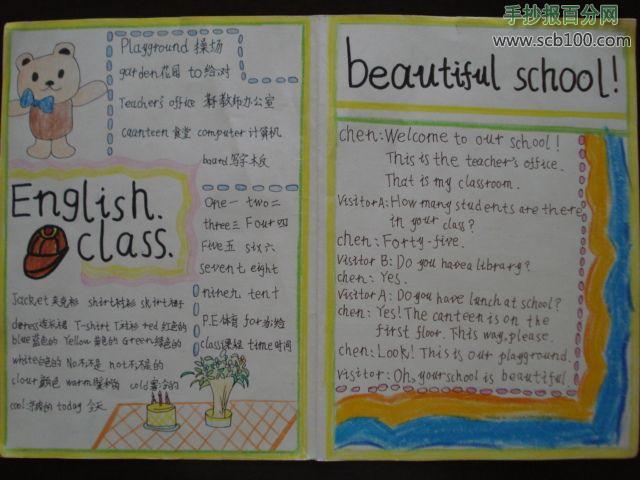 手抄报百分网
www.scb100.com
Playground 操场
garden花园 to 给,对
Teacher's office 教师办公室
caanteen 食堂 computer 计算机
board 写字木反
English.
class.
One 一 two 二
three三 Four 四
Five 五 six 六
seven七 eight
nine九 ten十
P.E.体育 for
class课程 time时间
Jacket 夹克衫 shirt衬衫 skirt裙子
dress连衣裙 T-shirt T衬衫 red 红色的
blue蓝色的 Yellow 黄色的 Green绿色的
white白色的 No不,不是 not不,不是的
clour颜色 warm暖和的 cold寒冷的
cool凉爽的 today 今天
beautiful school!
chen:Welcome to our school!
This is the teacher's office.
That is my classroom.
Visitor A:How many students are there
in your class?
chen: Forty-five.
Visitor B: Do you have a library?
chen: Yes.
Visitor A: Do you have lunch at school?
chen: Yes! The canteen is on the
first floor. This way,please.
chen: Look! This is our playground.
Visitor: Oh, your school is beautiful.